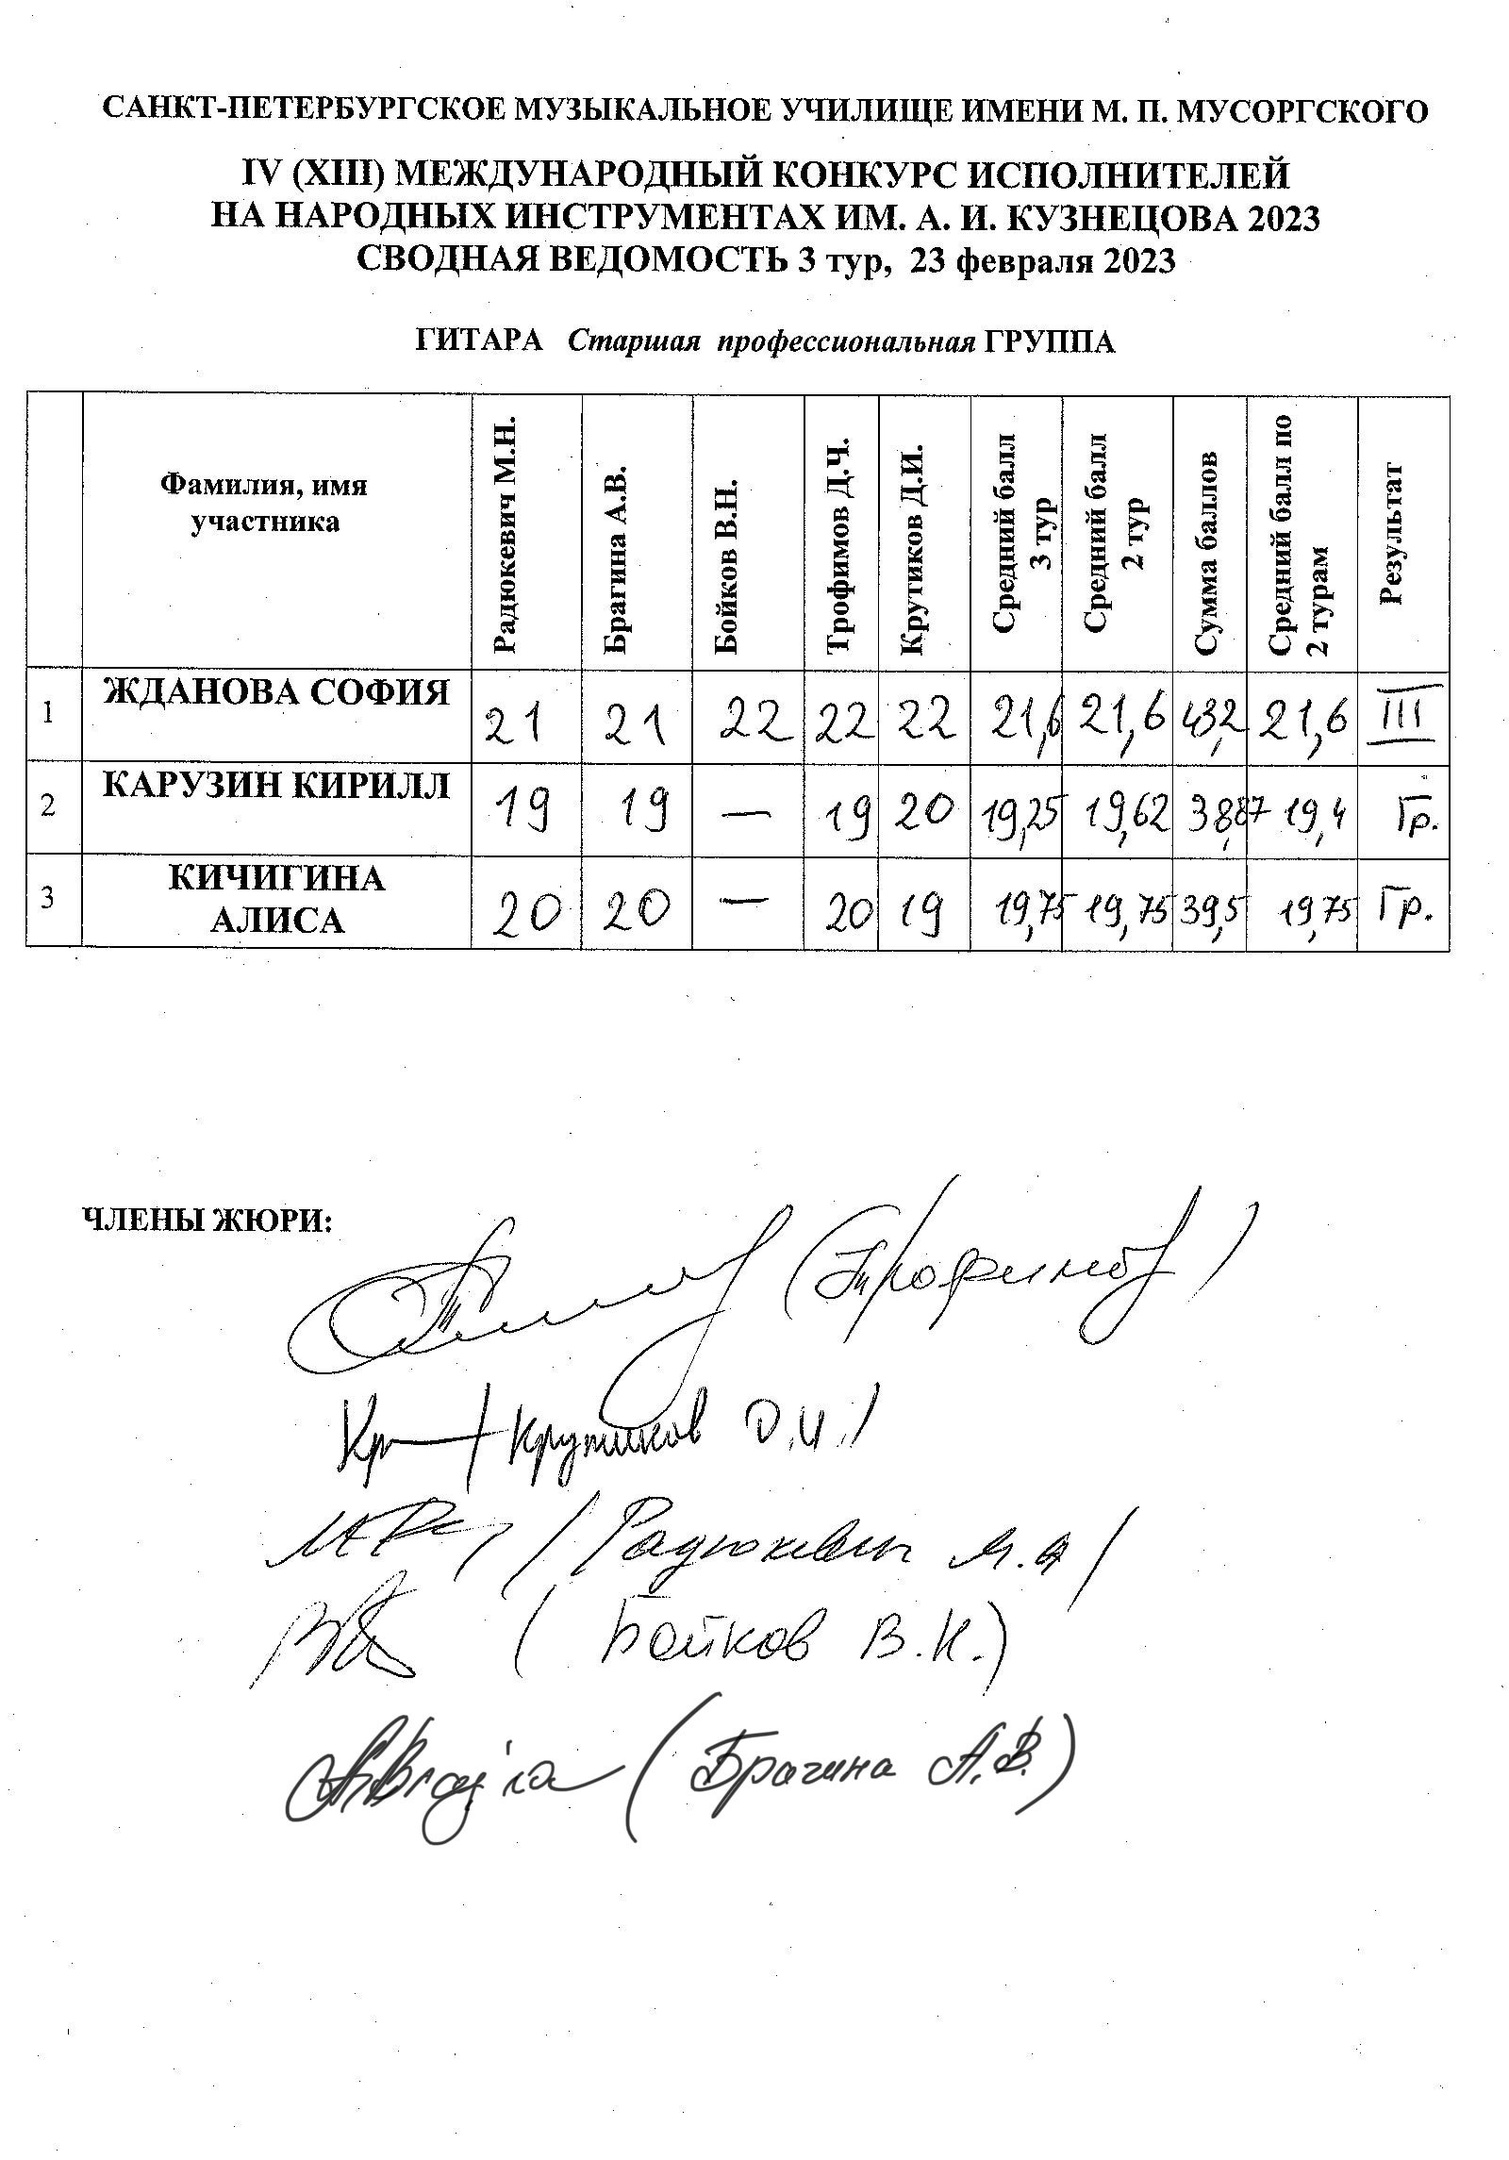 САНКТ-ПЕТЕРБУРГСКОЕ МУЗЫКАЛЬНОЕ УЧИЛИЩЕ ИМЕНИ М. П. МУСОРГСКОГО
IV (XIII) МЕЖДУНАРОДНЫЙ КОНКУРС ИСПОЛНИТЕЛЕЙ
НА НАРОДНЫХ ИНСТРУМЕНТАХ ИМ. А. И. КУЗНЕЦОВА 2023
СВОДНАЯ ВЕДОМОСТЬ 3 тур, 23 февраля 2023
ГИТАРА Старшая профессиональная ГРУППА
Фамилия, имя
участника
Радюкевич М.Н.
Брагина А.В.
Бойков В.Н.
Трофимов Д.Ч.
Крутиков Д.И.
Средний балл
3 тур
Средний балл
2 тур
Сумма баллов
Средний балл по
2 турам
Результат
1 ЖДАНОВА СОФИЯ 21 21 22 22 22 21,6 21,6 43,2 21,6 III
2 КАРУЗИН КИРИЛЛ 19 19 — 19 20 19,25 19,62 38,87 19,4 Гр.
3 КИЧИГИНА
АЛИСА 20 20 — 20 19 19,75 19,75 39,5 19,75 Гр.
ЧЛЕНЫ ЖЮРИ:
(Трофимов)
/Крутиков Д.И./
/Радюкевич М.Н/
(Бойков В.Н.)
(Брагина А.В.)